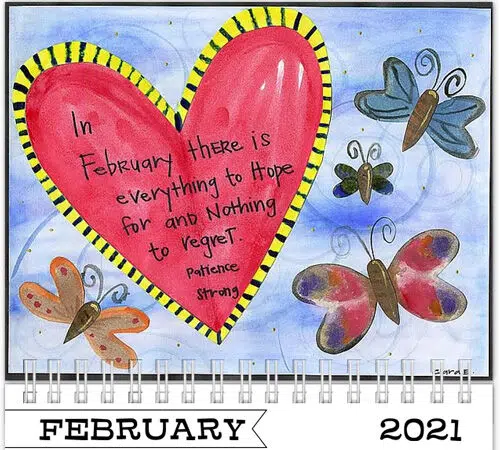 In
February there is
everything to Hope
for and Nothing
to regret.
Patience
Strong
Sara E.
FEBRUARY 2021